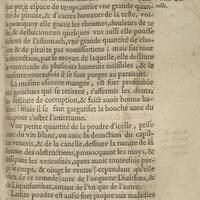 un petit espace de temps, attire vne grande quan-
té de pituite, & d'autres humeurs de la teste, voi-
pourquoy elle guerit les rheumes, douleurs de te-
& defluxions: quelques vns aussi elle poudre
dehors de l'estomach, vne grande quantité de cho-
re & de pituite par vomissement; mais sur tout
decoction, par le moyen de laquelle, elle desseure
ventricule de plusieurs humeurs nuisibles, & le
conforte: toutesfois il se faut purger au parauant.
La mesme escorce maschée, est fort profitable
aux genciues qui se retirent, r'affermit les dents,
desseure de corruption, & fait auoir bonne ha-
leine: mais il se faut gargariser la bouche auec du
vin, pour s'oster l'amertume.
Vne petite quantité de la poudre d'icelle, prise
auec du vin blanc, ou auec la decoction du capil-
veneris, & de la canelle, desseure la nature de la
femme des obstructions, prouoquant les moys, &
dissipant les ventositez, apres auoir toutesfois pur-
gé le corps, & oinge le ventre (cependant qu'elle
vse de ce remede) auec de l'onguent Dialthée, &
de Liquidambar, autant de l'vn que de l'autre.
Ladite poudre est aussi fort propre aux maladies